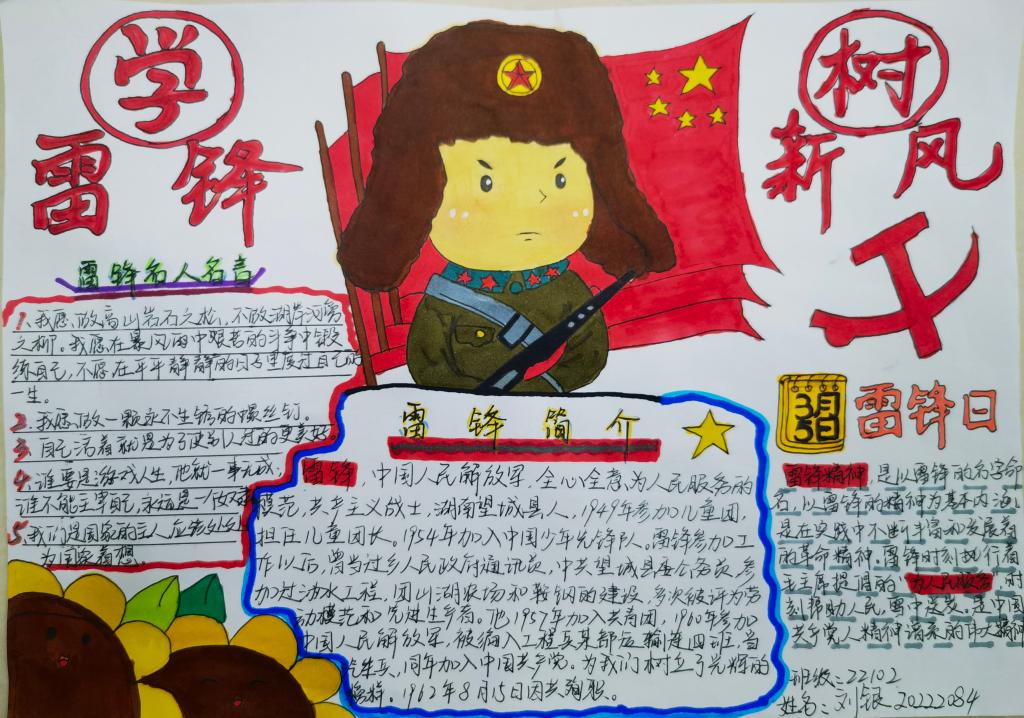 学
雷锋
树
新风
雷锋名人名言
1.我愿做高山岩石之松,不做湖岸河旁
之柳。我愿在暴风雨中艰苦的斗争中锻
练自己,不愿在平平静静的日子里度过自己的
一生。
2.我愿做一颗永不生锈的螺丝钉。
3.自己活着就是为了使别人过的更美好。
4.谁要是游戏人生,他就一事无成,
谁不能主宰自己,永远是一个奴隶
5.我们是国家的主人,应该处处
为国家着想。
雷锋简介
雷锋,中国人民解放军,全心全意为人民服务的
模范,共产主义战士,湖南望城县人,1949年参加儿童团,
担任儿童团长。1954年加入中国少年先锋队。雷锋参加工
作以后,曾当过乡人民政府通讯员,中共望城县委公务员,参
加过治水工程,团山湖农场和鞍钢的建设,多次被评为劳
动模范和先进生产者。他1957年加入共青团,1960年参加
中国人民解放军,被编入工程兵某部运输连四班,当
汽车兵,同年加入中国共产党。为我们树立了光辉的
榜样。1962年8月15日因公殉职。
3月
5日
雷锋日
雷锋精神,是以雷锋的名字命
名,以雷锋的精神为基本内涵
是在实践中不断丰富和发展着
的革命精神.雷锋时刻执行着
毛主席提倡的:为人民服务,时
刻帮助人民,雷中这表,是中国
共产党人精神谱系的伟大精神
班级:22102
姓名:刘银 20222084